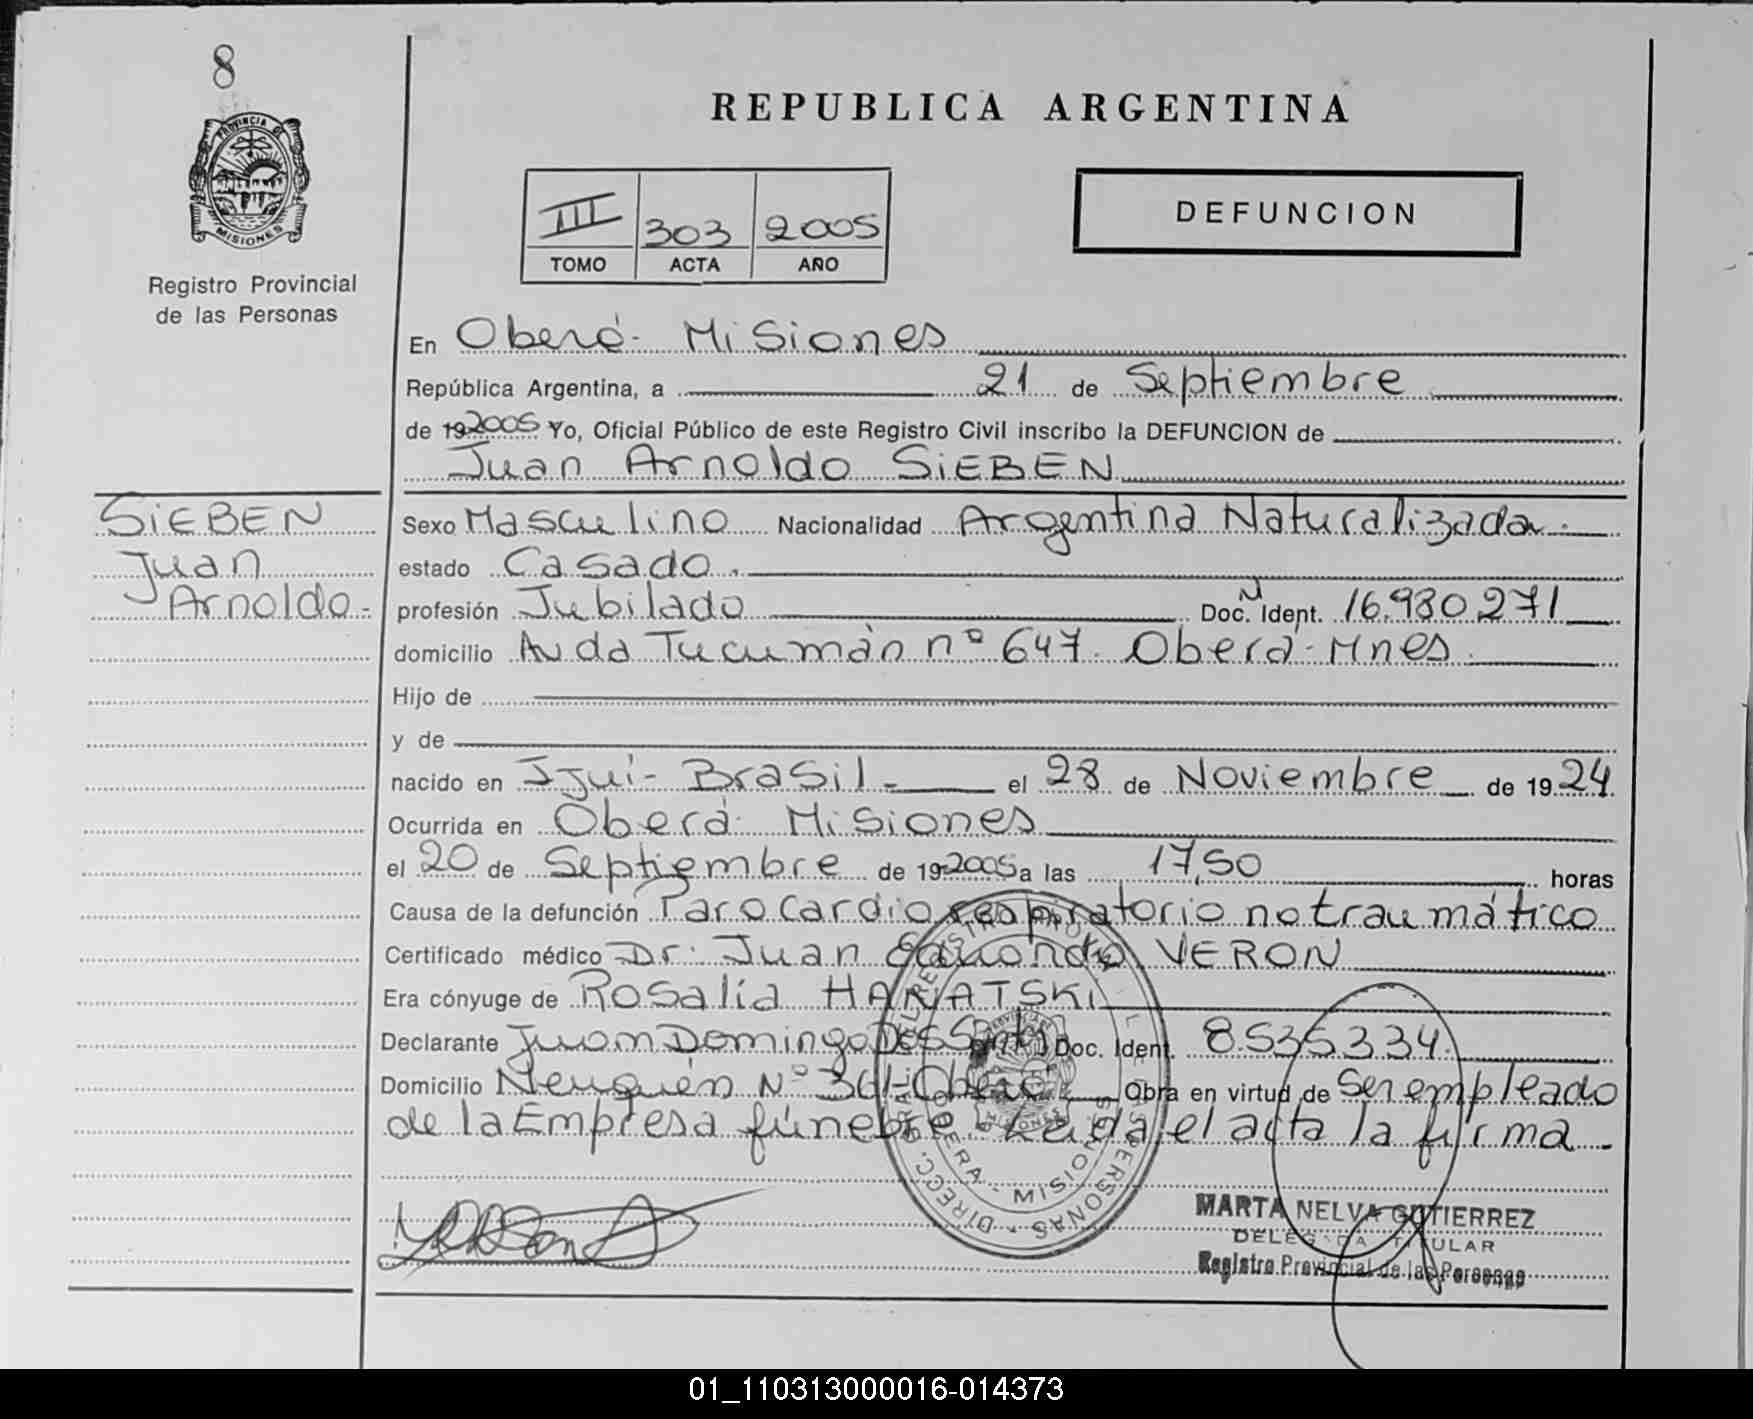 8
PROVINCIA DE
MISIONES
Registro Provincial
de las Personas
REPUBLICA ARGENTINA
III 303 2005
TOMO ACTA AÑO
DEFUNCION
En Oberá - Misiones
República Argentina, a 21 de Septiembre
de 19 2005 Yo, Oficial Público de este Registro Civil inscribo la DEFUNCION de
Juan Arnoldo SiEBEN
SiEBEN
Juan
Arnoldo.-
Sexo Masculino Nacionalidad Argentina Naturalizada.-
estado Casado.
profesión Jubilado Doc. N Ident. 16.930.271
domicilio Avda Tucumán nº 647. Oberá - Mnes.
Hijo de
y de
nacido en Ijuí - Brasil - el 28 de Noviembre de 19 24
Ocurrida en Oberá - Misiones
el 20 de Septiembre de 19 2005 a las 17,50 horas
Causa de la defunción Paro cardio respiratorio no traumático
Certificado médico Dr. Juan VERON
Era cónyuge de Rosalía HARIATSKI
Declarante Juan Domingo Dos Santos Doc. Ident. 8.535.334.
Domicilio Neuquén Nº 361-Oberá Obra en virtud de Ser empleado
de la Empresa fúnebre - Leída el acta la firma -
MISIONES
MARTA NELVA GUTIERREZ
DELEGADA TITULAR
Registro Provincial de las Personas
01_110313000016-014373